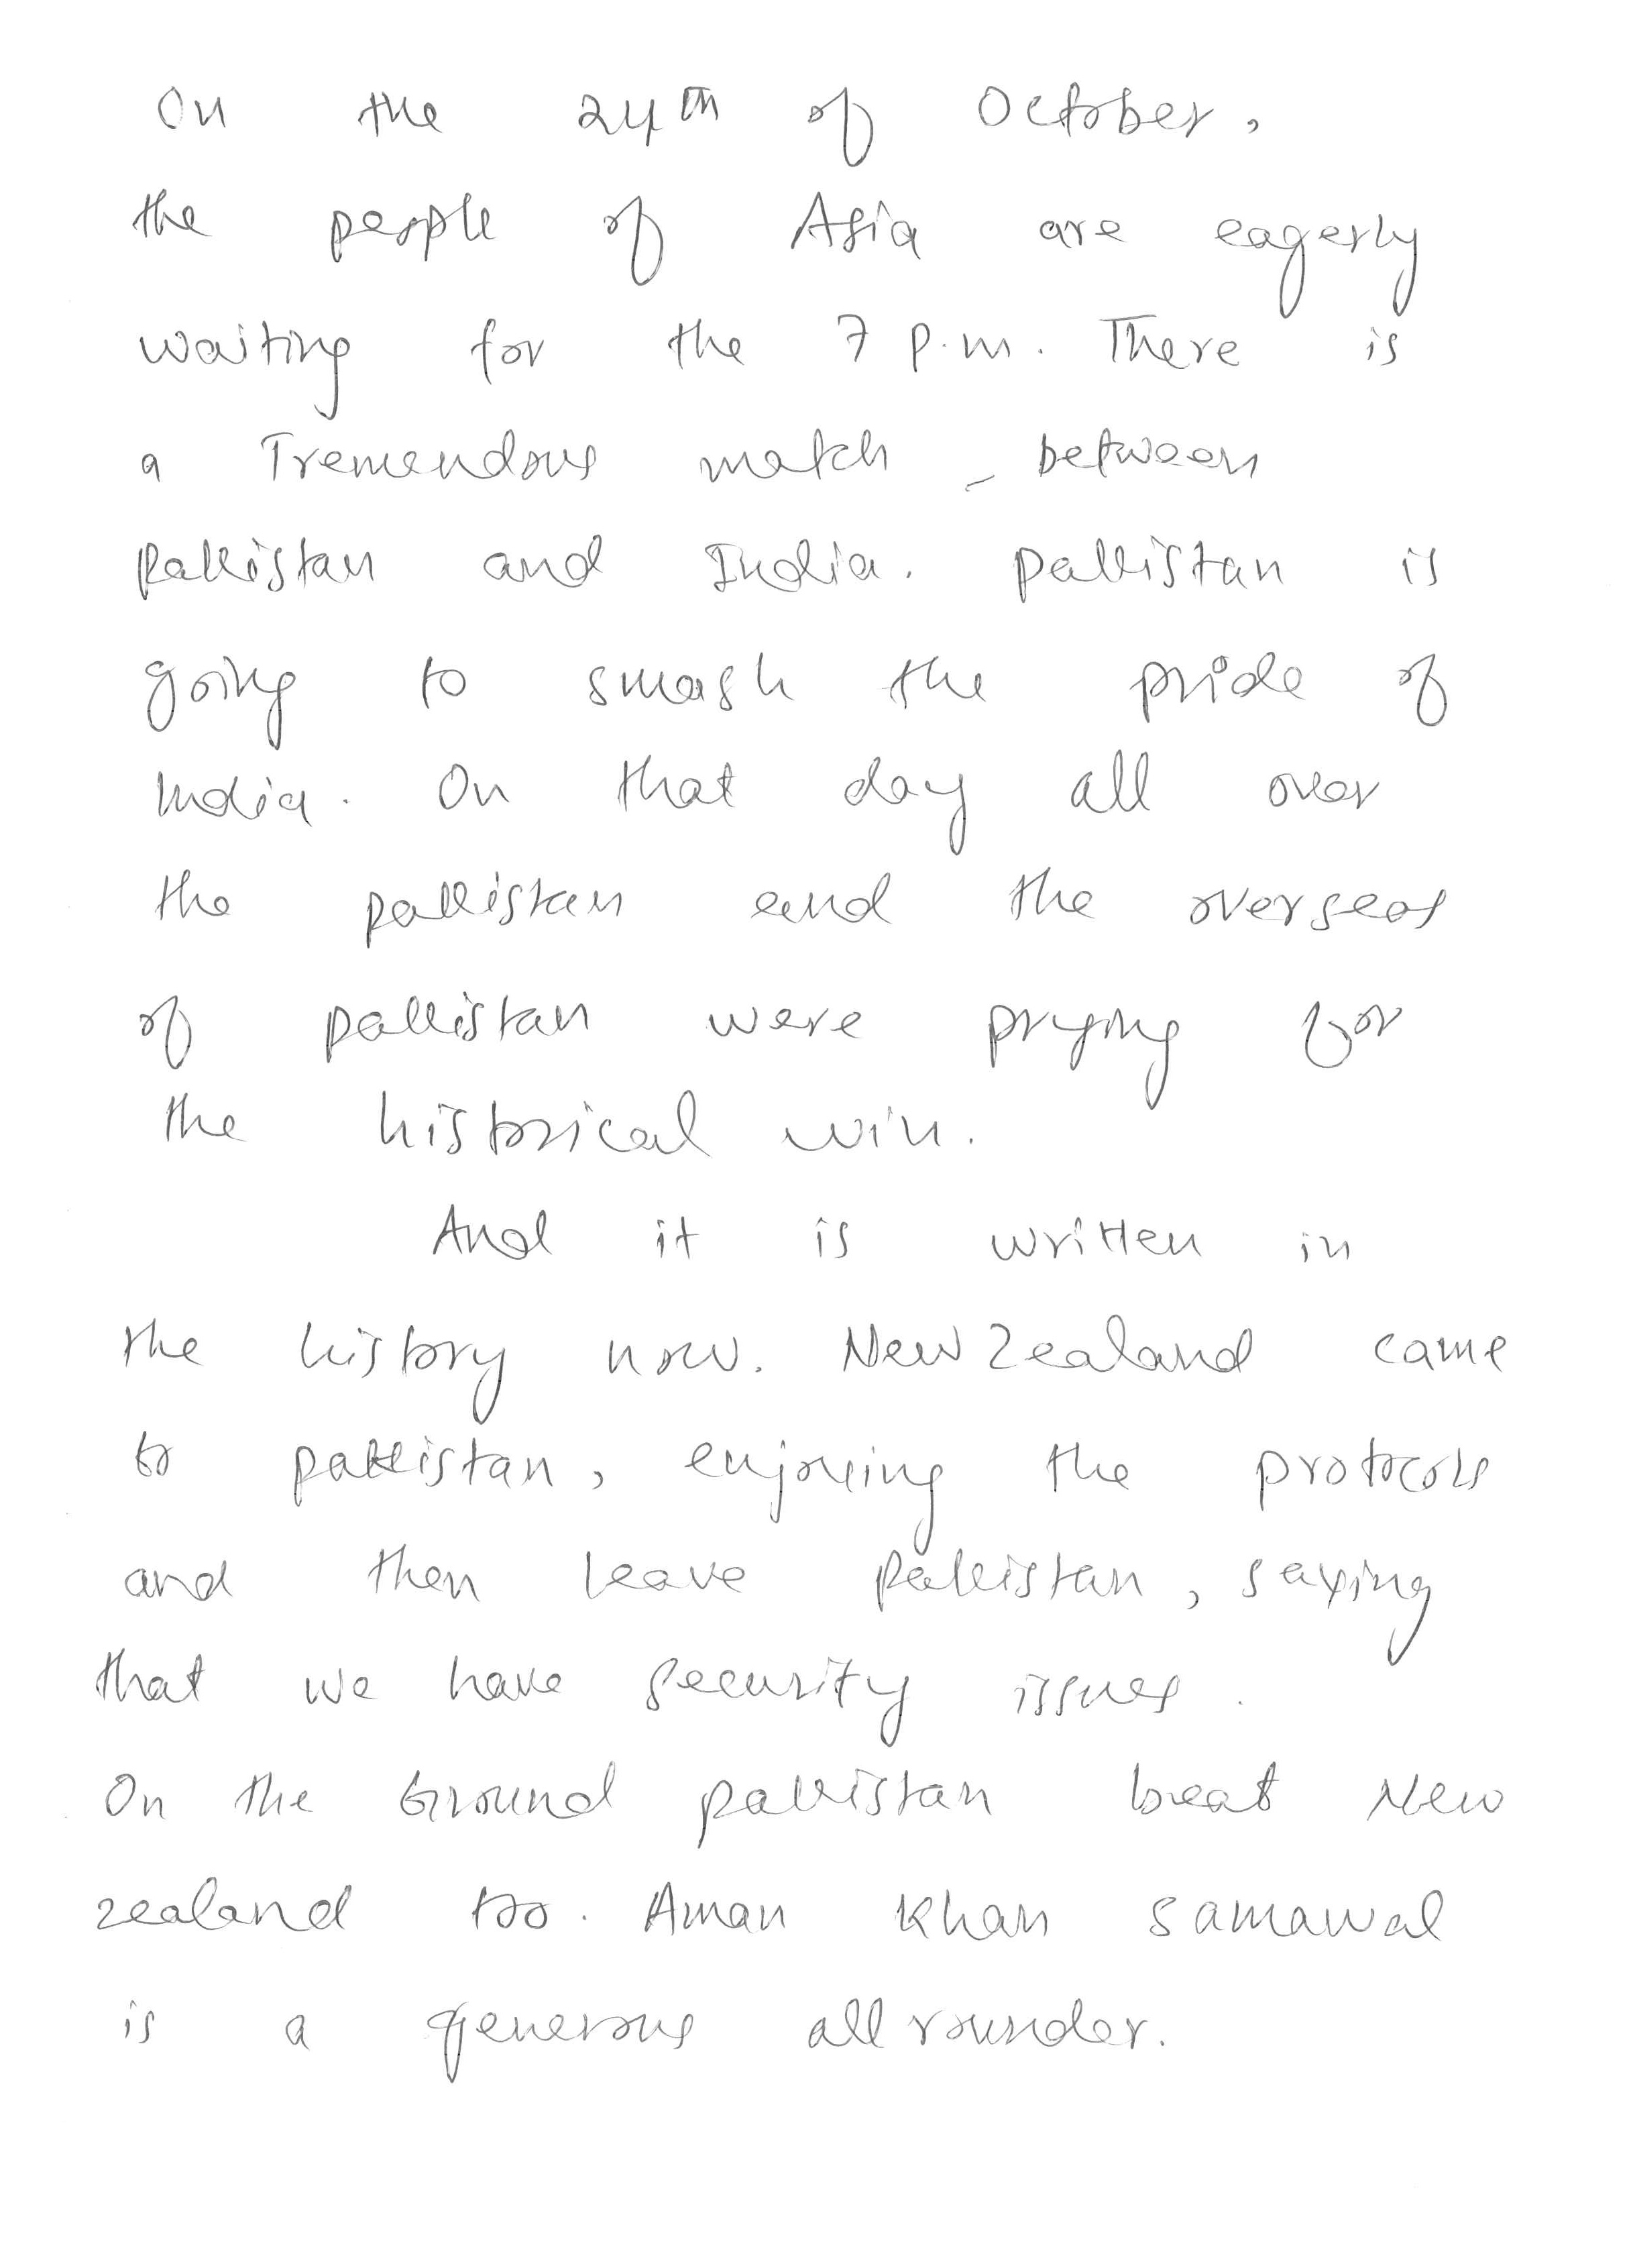 On the 24th of October,
the people of Asia are eagerly
waiting for the 7 p.m. There is
a Tremendous match between
Pakistan and India. pakistan is
going to smash the pride of
India. On that day all over
the pakistan and the overseas
of pakistan were prying for
the historical win.
And it is written in
the history now. New Zealand came
to pakistan, enjoying the protocols
and then leave Pakistan, saying
that we have security issues.
On the Ground pakistan beat New
zealand too. Aman Khan samawal
is a generous all rounder.